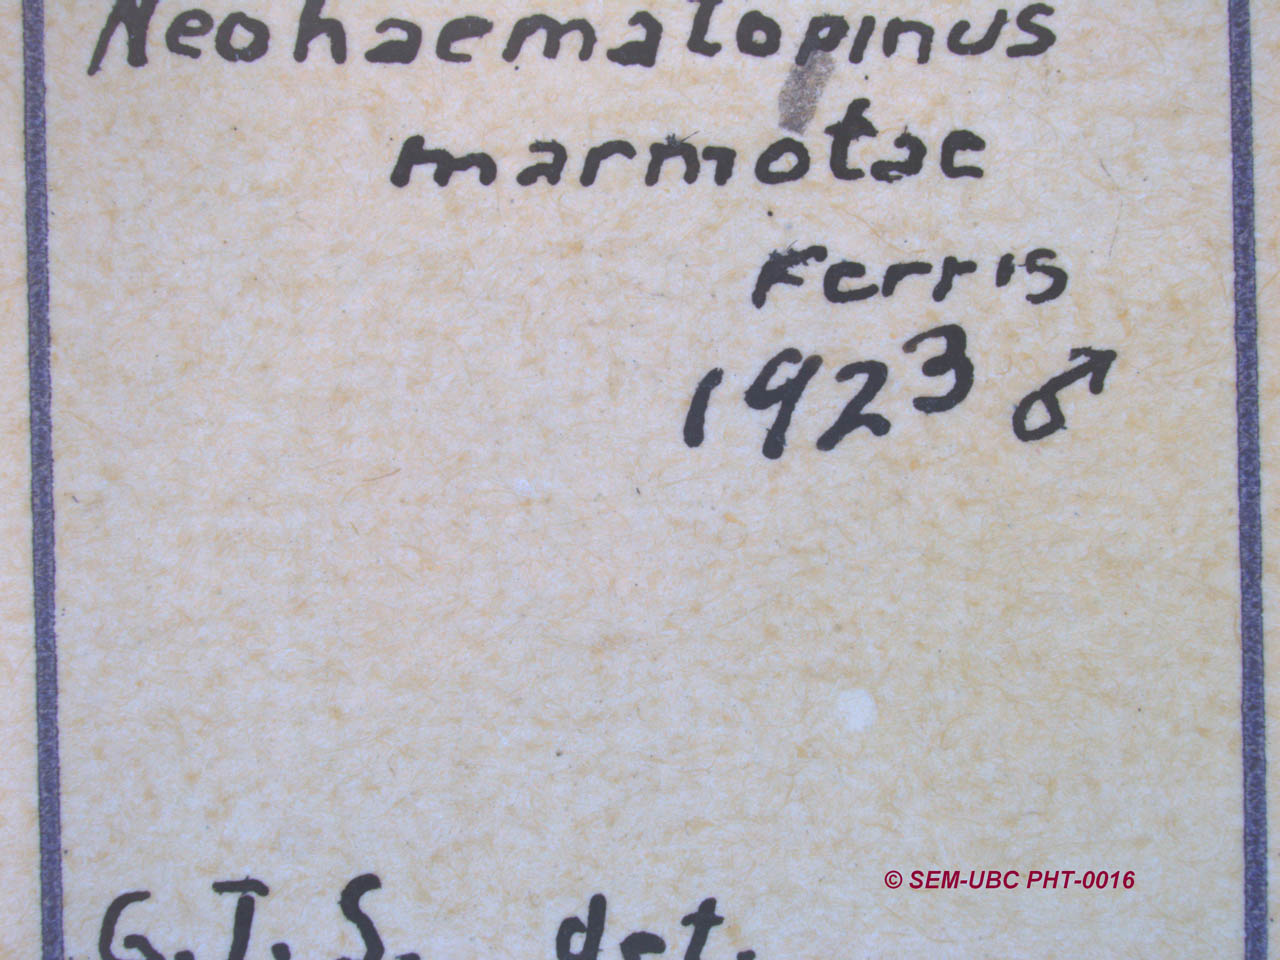 Neohaematopinus
marmotae
Ferris
1923 ♂
© SEM-UBC PHT-0016
G.J.S. det.